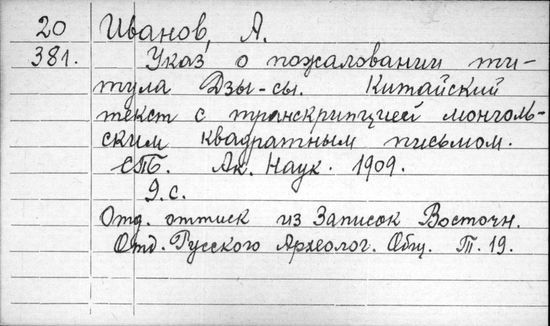 20 Иванов, А.
381. Указ о пожаловании ти-
тула Дзы-сы. Китайский
текст с транскрипцией монголь-
ским квадратным письмом.
СПБ. Ак. Наук. 1909.
9 с.
Отд. оттиск из Записок Восточн.
Отд. Русского Археолог. Общ. Т. 19.